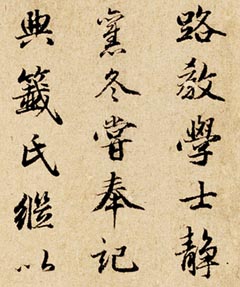 路教學士静
冬嘗奉記
典籤氏繼以